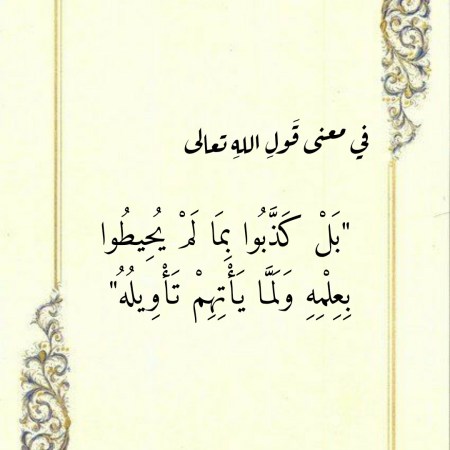 في معنى قَولِ اللهِ تعالى
"بَلْ كَذَّبُوا بِمَا لَمْ يُحِيطُوا
بِعِلْمِهِ وَلَمَّا يَأْتِهِمْ تَأْوِيلُهُ"